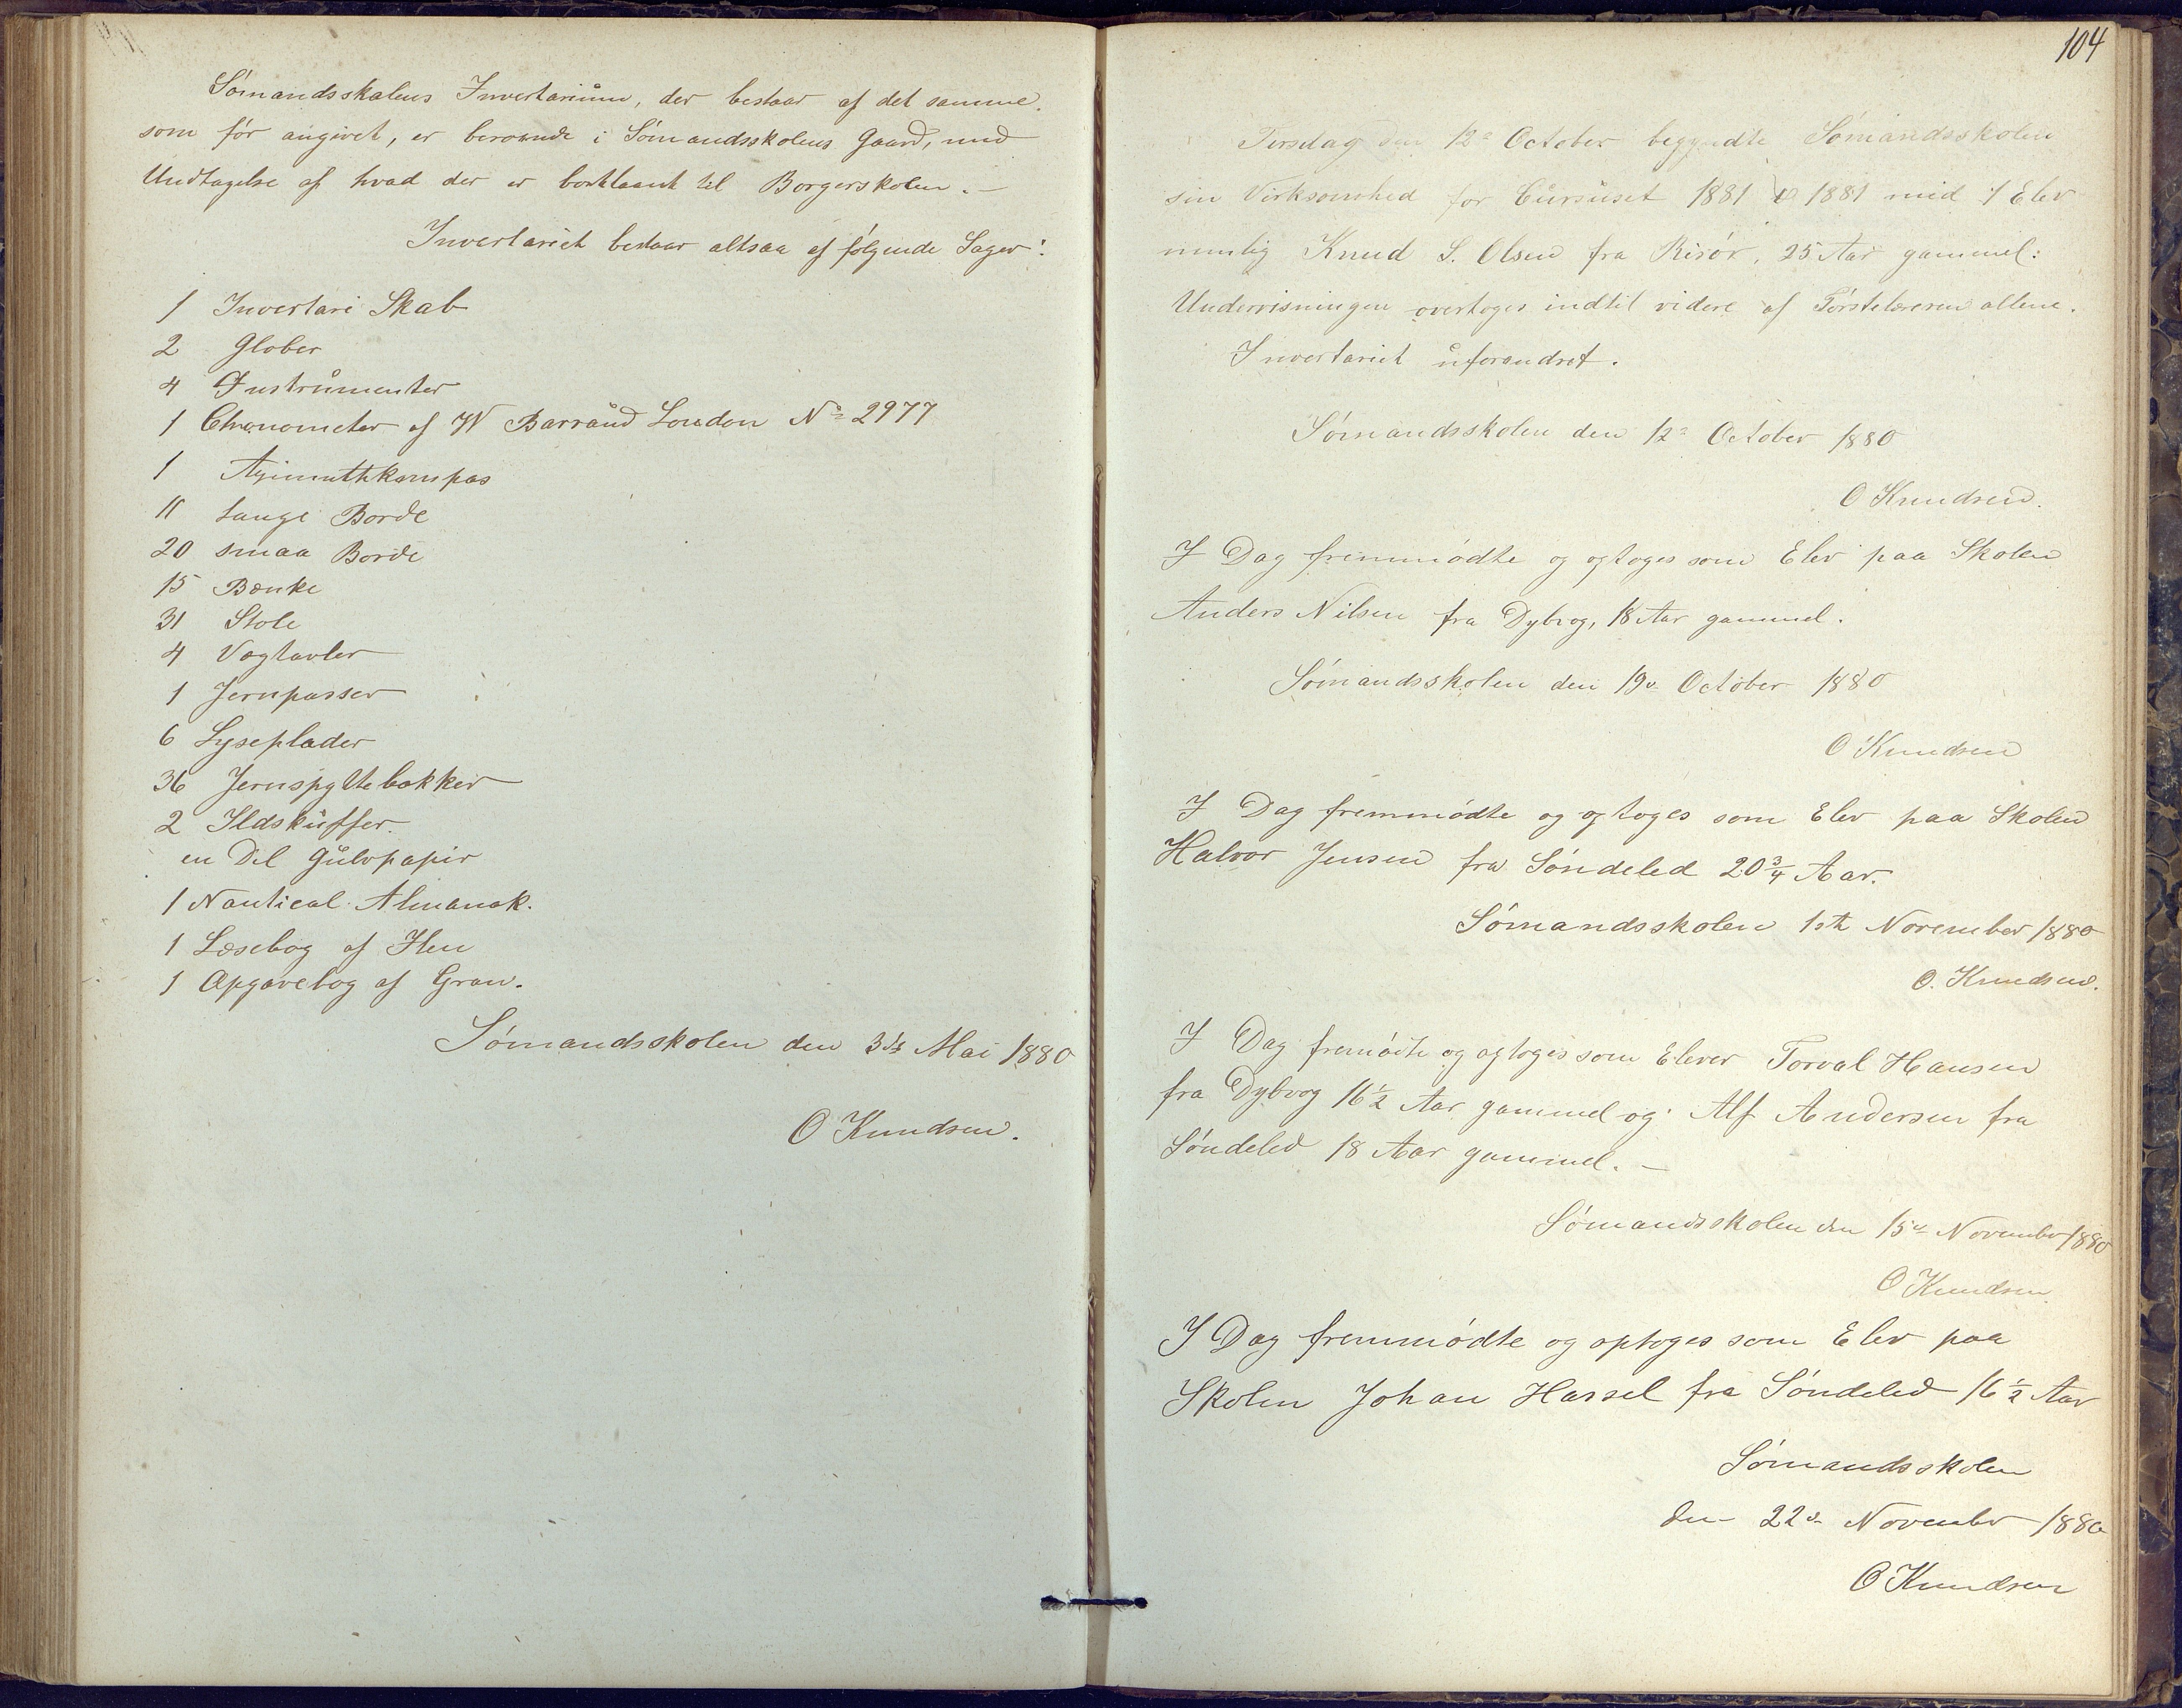 Sømandsskolens Inventarium, der bestaar af det samme
som før angivet, er beroende i Sømandsskolens Gaard, med
Undtagelse af hvad der er bortlaant til Borgerskolen.—
Inventariet bestaar altsaa af følgende Sager:
1 Inventari Skab
2 Glober
4 Instrumenter
1 Chronometer af W Barraud London No 2977
1 Azimuthkompas
11 lange Borde
20 smaa Borde
15 Bænke
31 Stole
4 Vægtavler
1 Jernpasser
6 Lyseplader
36 Jernspyttebakker
2 Ildskuffer.
en Del Gulvpapir
1 Nautical Almanak.
1 Læsebog af Jken
1 Opgavebog af Gran.
Sømandsskolen den 31te Mai 1880
O Knudsen.
104
Tirsdag den 12te October begyndte Sømandsskolen
sin Virksomhed for Cursuset 1881 1881 med 1 Elev
nemlig Knud S. Olsen fra Risør, 25 Aar gammel:
Undervisningen overtoges indtil videre af Førstelæreren allene.
Inventariet uforandret.
Sømandsskolen den 12te October 1880
O Knudsen.
I Dag fremmødte og optoges som Elev paa Skolen
Anders Nilsen fra Dybvog, 18 Aar gammel.
Sømandsskolen den 19de October 1880
O Knudsen
I Dag fremmødte og optoges som Elev paa Skolen
Halvor Jensen fra Søndeled 20 3/4 Aar.
Sømandsskolen 1ste November 1880
O. Knudsen.
I Dag fremødte og optoges som Elever Torval Hansen
fra Dybvog 16 1/2 Aar gammel og Alf Andersen fra
Søndeled 18 Aar gammel. —
Sømandsskolen den 15de November 1880
O Knudsen
I Dag fremmødte og optoges som Elev paa
Skolen Johan Hassel fra Søndeled 16 1/2 Aar
Sømandsskolen
den 22de November 1880
O Knudsen